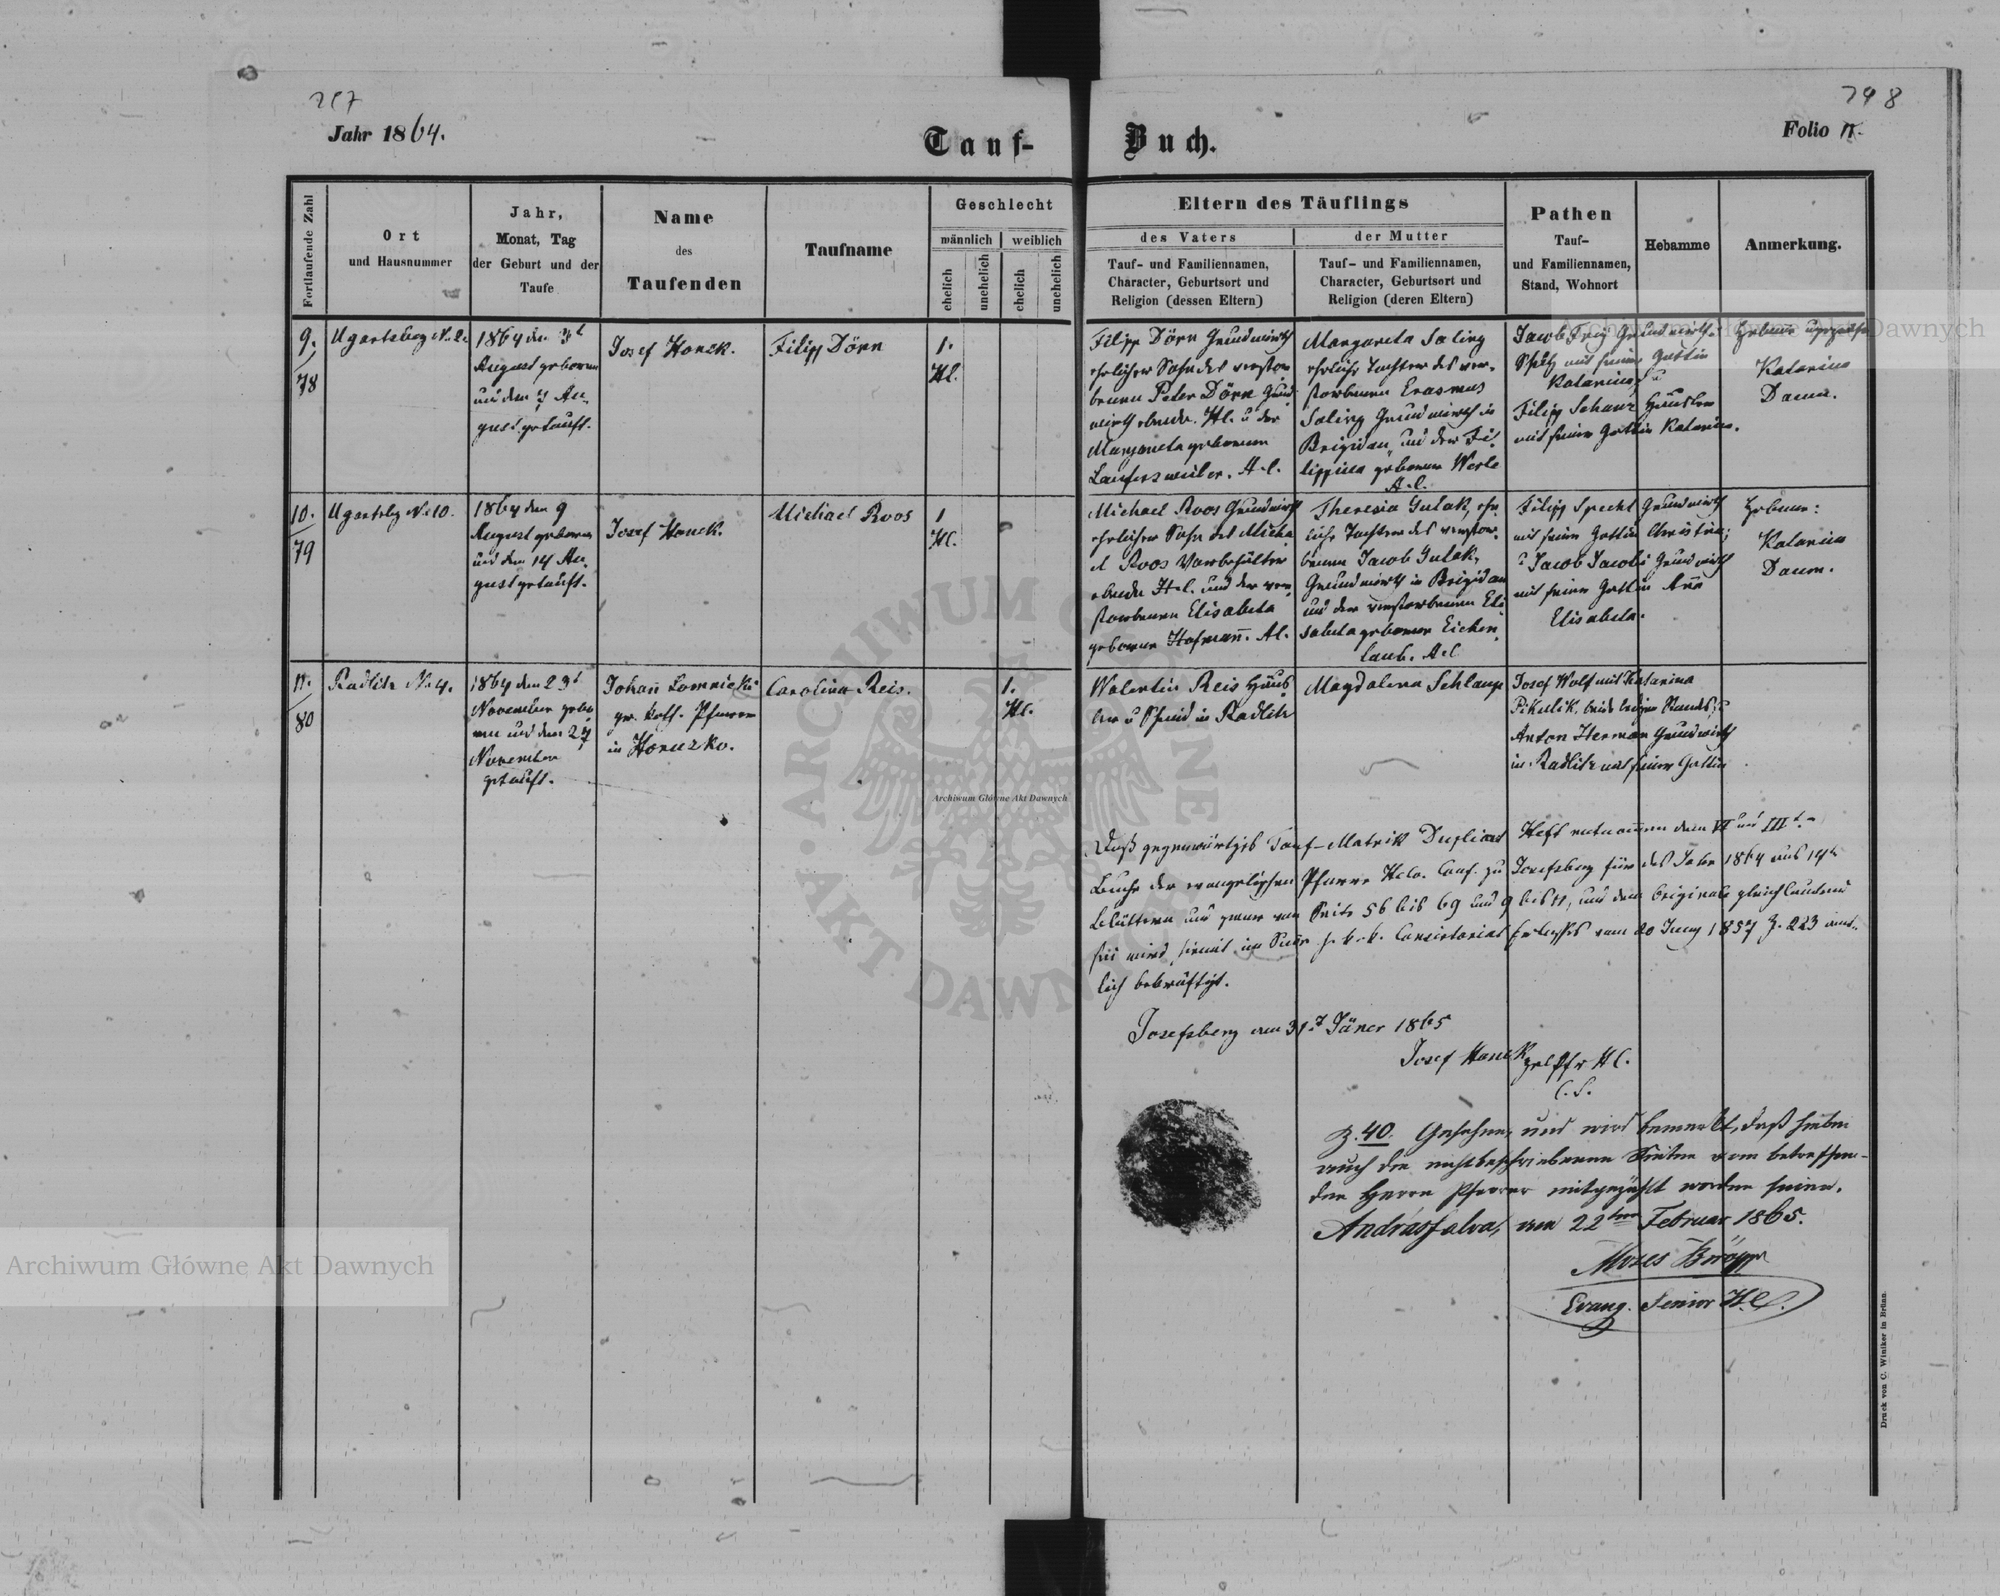 297
298
Jahr 1864.
Tauf-
Buch.
Folio 11.
Fortlaufende Zahl
Ort
und Hausnummer
Jahr,
Monat, Tag
der Geburt und der
Taufe
Name
des
Taufenden
Taufname
Geschlecht
männlich
weiblich
ehelich
unehelich
ehelich
unehelich
Eltern des Täuflings
des Vaters
der Mutter
Tauf- und Familiennamen,
Character, Geburtsort und
Religion (dessen Eltern)
Tauf- und Familiennamen,
Character, Geburtsort und
Religion (deren Eltern)
Pathen
Tauf-
und Familiennamen,
Stand, Wohnort
Hebamme
Anmerkung.
9.
78
Ugartsberg N. 2.
1864 den 3t
August geboren
und den 7 Au-
gust getauft.
Josef Honek.
Filipp Dörn
1.
H.C.
Filipp Dörn Grundwirth
ehelicher Sohn des verstor
benen Peter Dörn Grund
wirth H.C. u der
Margareta geborenen
Laufersweiler. A.C.
Margareta Saling
eheliche Tochter des ver-
storbenen Erasmus
Saling Grundwirth in
Brigidau, und der Fi-
lippina geborenen Werle
A.C.
Jacob Frey Grundwirth
mit seiner Gattin
Katarina, u
Filipp Schanz Häusler
mit seiner Gattin Katarina.
Hebame
Katarina
Daum.
10.
79
Ugartsbg N. 10.
1864 den 9
August geboren
und den 14 Au-
gust getauft.
Josef Honek.
Michael Roos
1
H.C.
Michael Roos Grundwirth
ehelicher Sohn des Micha
el Roos
H.C. und der ver
storbenen Elisabeta
geborene Hofmann. A.C.
Theresia Gulak, ehe-
liche Tochter des verstor-
benen Jacob Gulak,
Grundwirth in Brigidau
und der verstorbenen Eli
sabeta geborene Eichen-
laub. A.C.
Filipp Specht Grundwirth
mit seiner Gattin Christina;
u Jacob Jacobi Grundwirth
mit seiner Gattin Anna
Elisabeta.
Hebame:
Katarina
Daum.
11.
80
Radlitz N. 4.
1864 den 23t
November gebo
ren und den 27
November
getauft.
Johann Lomnicki
gr. kath. Pfarrer
in Horuzko.
Carolina Reis.
1.
H.C.
Valentin Reis Häus
ler u Schmid in Radlitz
Magdalena Schlaup
Josef Wolf mit Katarina
Pikulik, beide ledigen Standes, u
Anton Herman Grundwirth
in Radlitz mit seiner Gattin
Daß gegenwärtiges Tauf-Matrik Duplicat Heft entnommen dem VI und IIIt
Buche der evangelischen Pfarre Helv. Conf. zu Josefsberg für das Jahr 1864 aus 14
Blättern und zwar von Seite 56 bis 69 und 9 bis 11, und dem Originale gleichlautend
sei wird hiemit im Sinne h. k.k. Consistorial Erlasses vom 20 Juny 1857 Z. 223 amt-
lich bekräftigt.
Josefsberg am 31t Jäner 1865
Josef Honek HC.
Z. 40. Gesehen, und wird bemerkt, daß hiebei
auch die nichtbeschriebenen Seiten vom betreffen-
den Herrn Pfarrer mitgezählt worden seien.
Andrásfalva, am 22ten Februar 1865.
Moses
Evang. Senior H.C.
Druck von C. Winiker in Brünn.
Archiwum Główne Akt Dawnych
Archiwum Główne Akt Dawnych
Archiwum Główne Akt Dawnych
ARCHIWUM GŁÓWNE AKT DAWNYCH